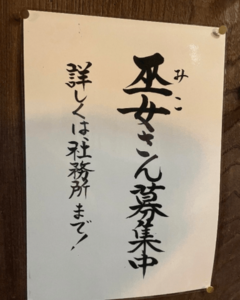 巫女さん募集中
みこ
詳しくは、社務所まで！